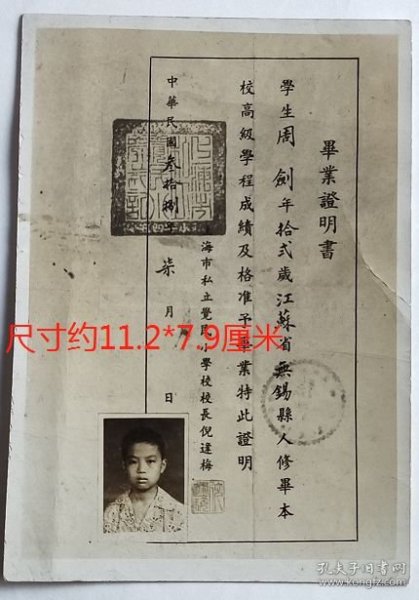 畢業證明書
學生周劍年拾貳歲江蘇省無錫縣人修畢本
校高級學程成績及格准予畢業特此證明
海市私立覺民小學校校長倪逢梅
中華民國叁拾捌年柒月 日
尺寸约11.2*7.9厘米
孔夫子旧书网